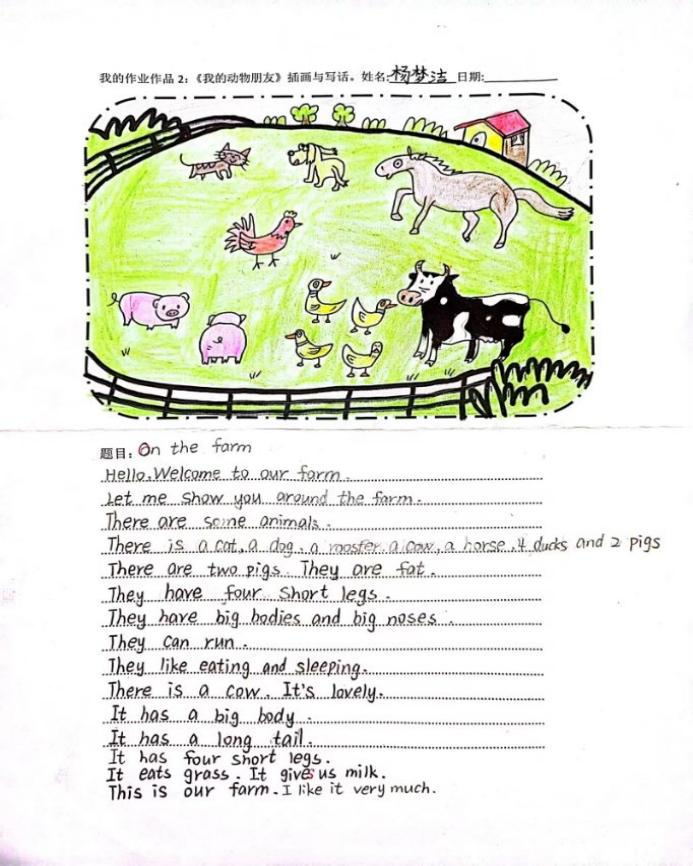 我的作业作品 2:《我的动物朋友》插画与写话。姓名:杨梦洁 日期:
题目: On the farm
Hello. Welcome to our farm.
Let me show you around the farm.
There are some animals.
There is a cat, a dog, a rooster, a cow, a horse, 4 ducks and 2 pigs
There are two pigs. They are fat.
They have four short legs.
They have big bodies and big noses.
They can run.
They like eating and sleeping.
There is a cow. It's lovely.
It has a big body.
It has a long tail.
It has four short legs.
It eats grass. It gives us milk.
This is our farm. I like it very much.